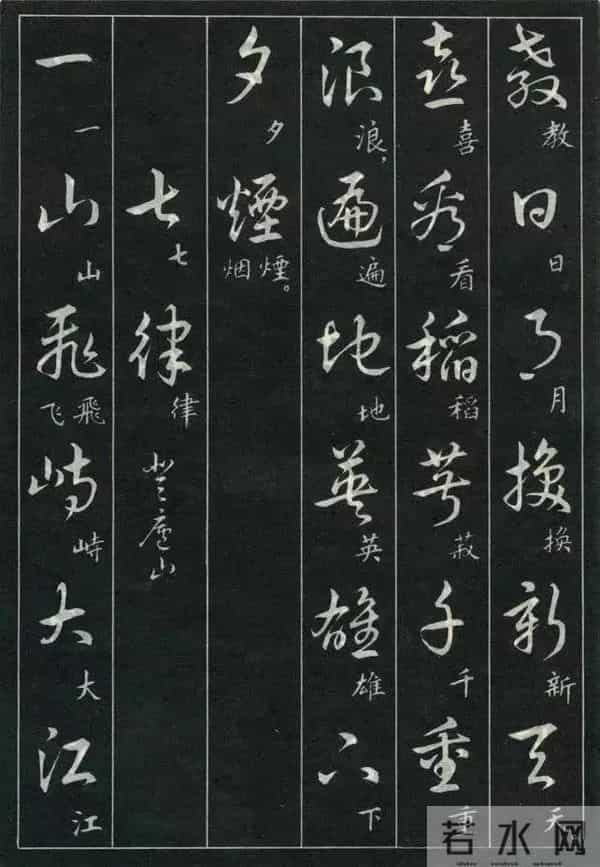 教日月换新天
教日月换新天
喜看稻菽千重
喜看稻菽千重
浪遍地英雄下
浪，遍地英雄下
夕煙
夕煙。烟
七律
七律
登庐山
一山飛峙大江
一山飛飞峙大江
若水网